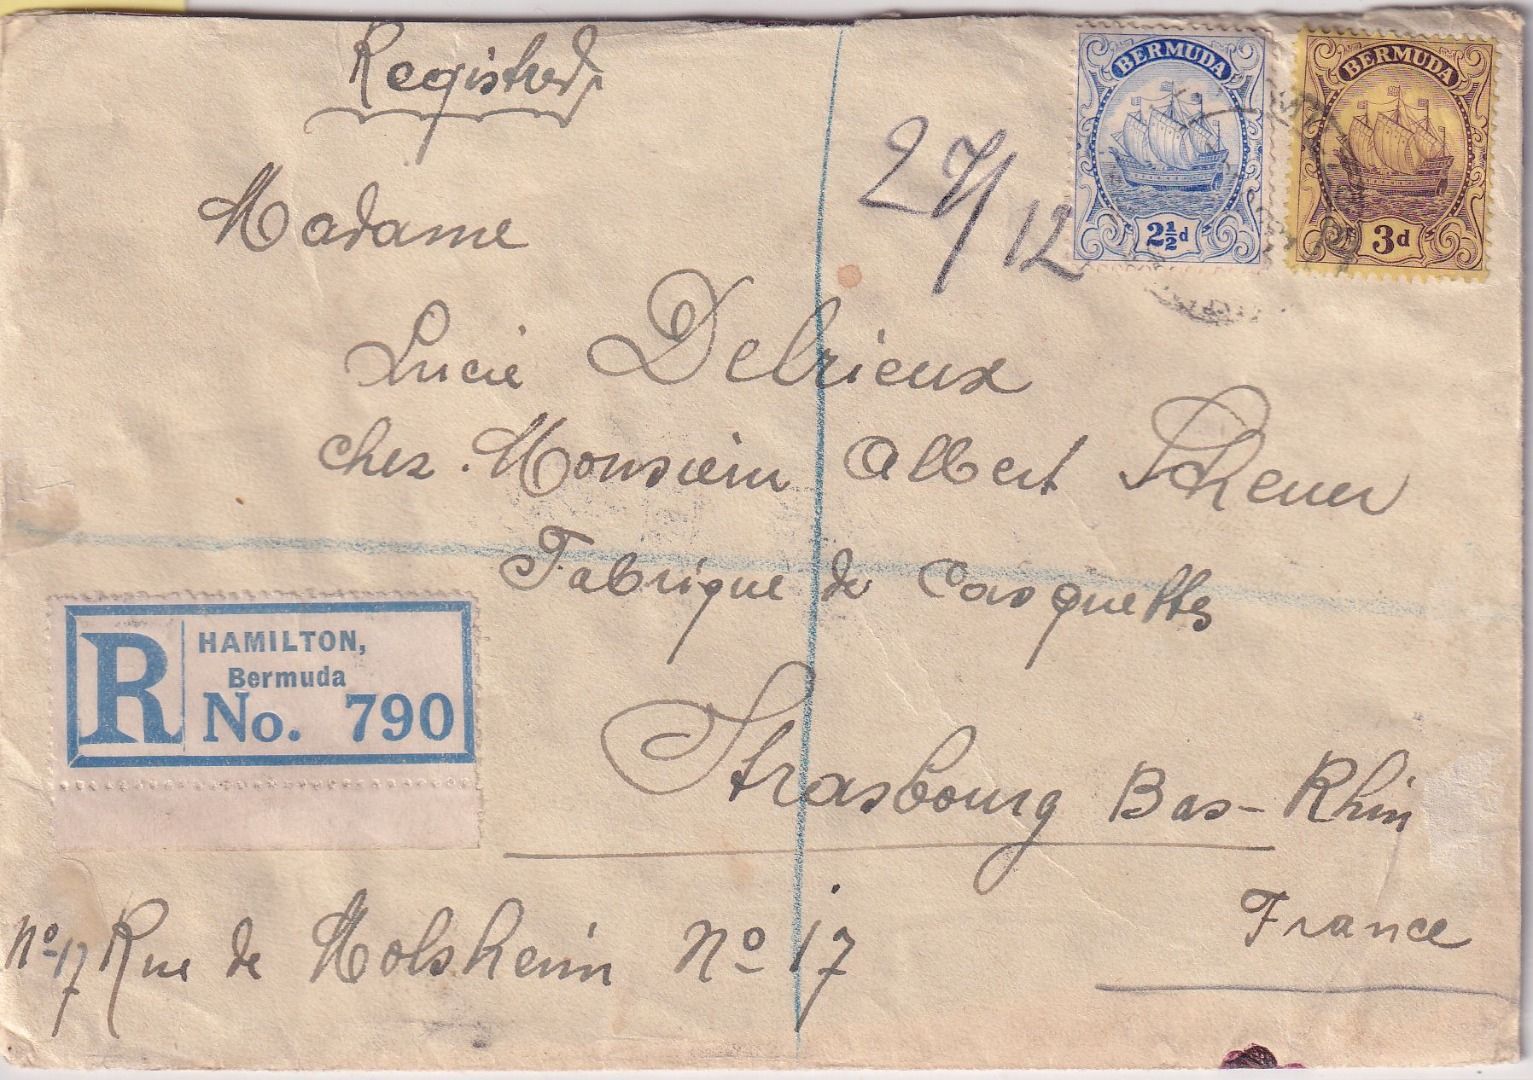 Registred
BERMUDA
2½d
BERMUDA
3d
27/12
Madame
Lucie Delrieux
chez Monsieur Albert
Fabrique de Casquettes
Strasbourg Bas-Rhin
France
R
HAMILTON,
Bermuda
No. 790
No 17 Rue de Molsheim No 17